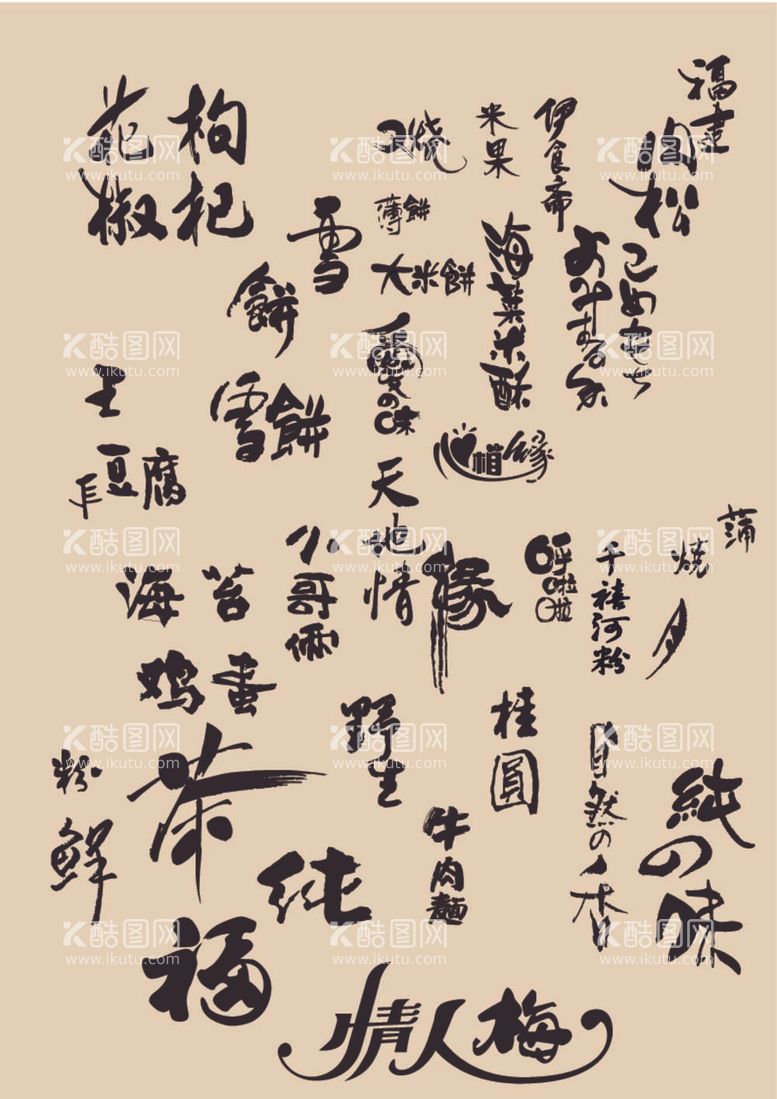 花椒
枸杞
口烧
米果
伊食斋
福建
肉松
雪
餅
薄餅
大米餅
海菜米酥
こめ
人愛の味
王
雪餅
心相缘
豆腐
天地情
缘
小哥俩
呼啦啦
千禧河粉
蒲
烧
月
海苔
鸡蛋
粉
鲜
茶
野生
桂圆
自然の香
純の味
牛肉麵
纯
福
情人梅
酷图网
www.ikutu.com